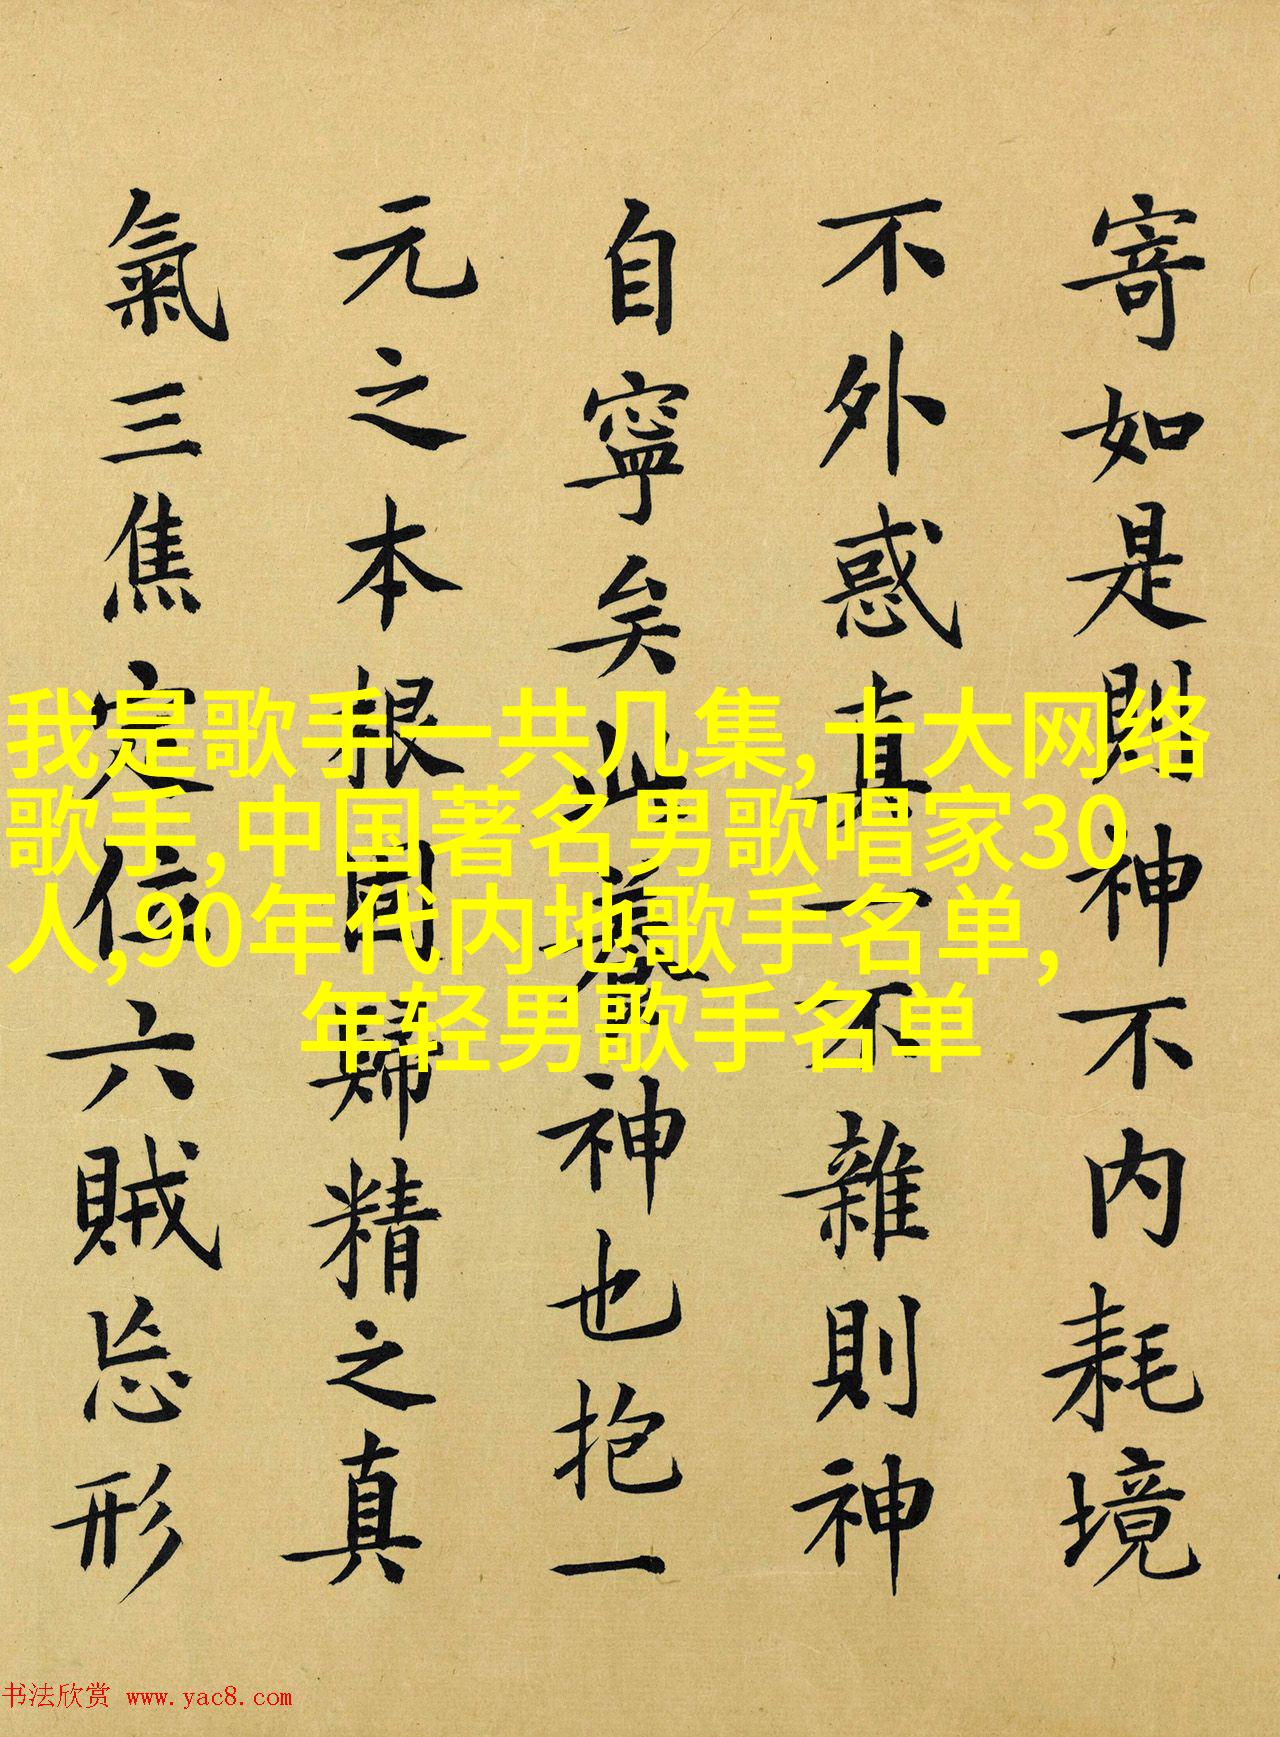 寄如是則神不内耗境
不外惑真一不雜則神
自寧矣此養神也抱一
元之本根固歸精之真
氣三焦定位六賊忘形
我是歌手一共几集,十大网络
歌手,中国著名男歌唱家30
人,90年代内地歌手名单,
年轻男歌手名单
书法欣赏 www.yac8.com